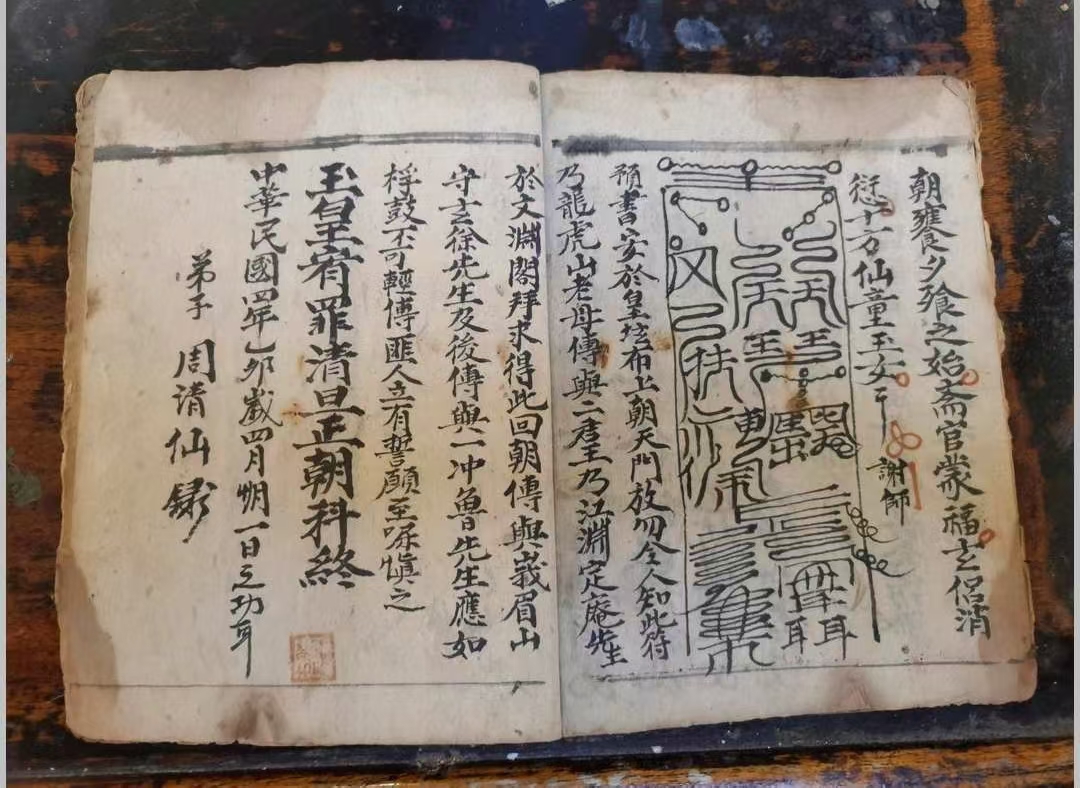 朝饔夕飱之始斋官蒙福玄侣消
愆十方仙童玉女
謝師
預書安於皇坛布上朝天門放勿令人知此符
乃龍虎山老母傳與二君王乃江淵定庵先生
於文淵閣拜求得此回朝傳與峩眉山
守玄徐先生及後傳與一冲魯先生應如
桴鼓不可輕傳匪人立有誓願至嘱慎之
玉皇宥罪清旦正朝科終
中華民國四年乙卯歲四月朔一日之功耳
弟子 周清仙